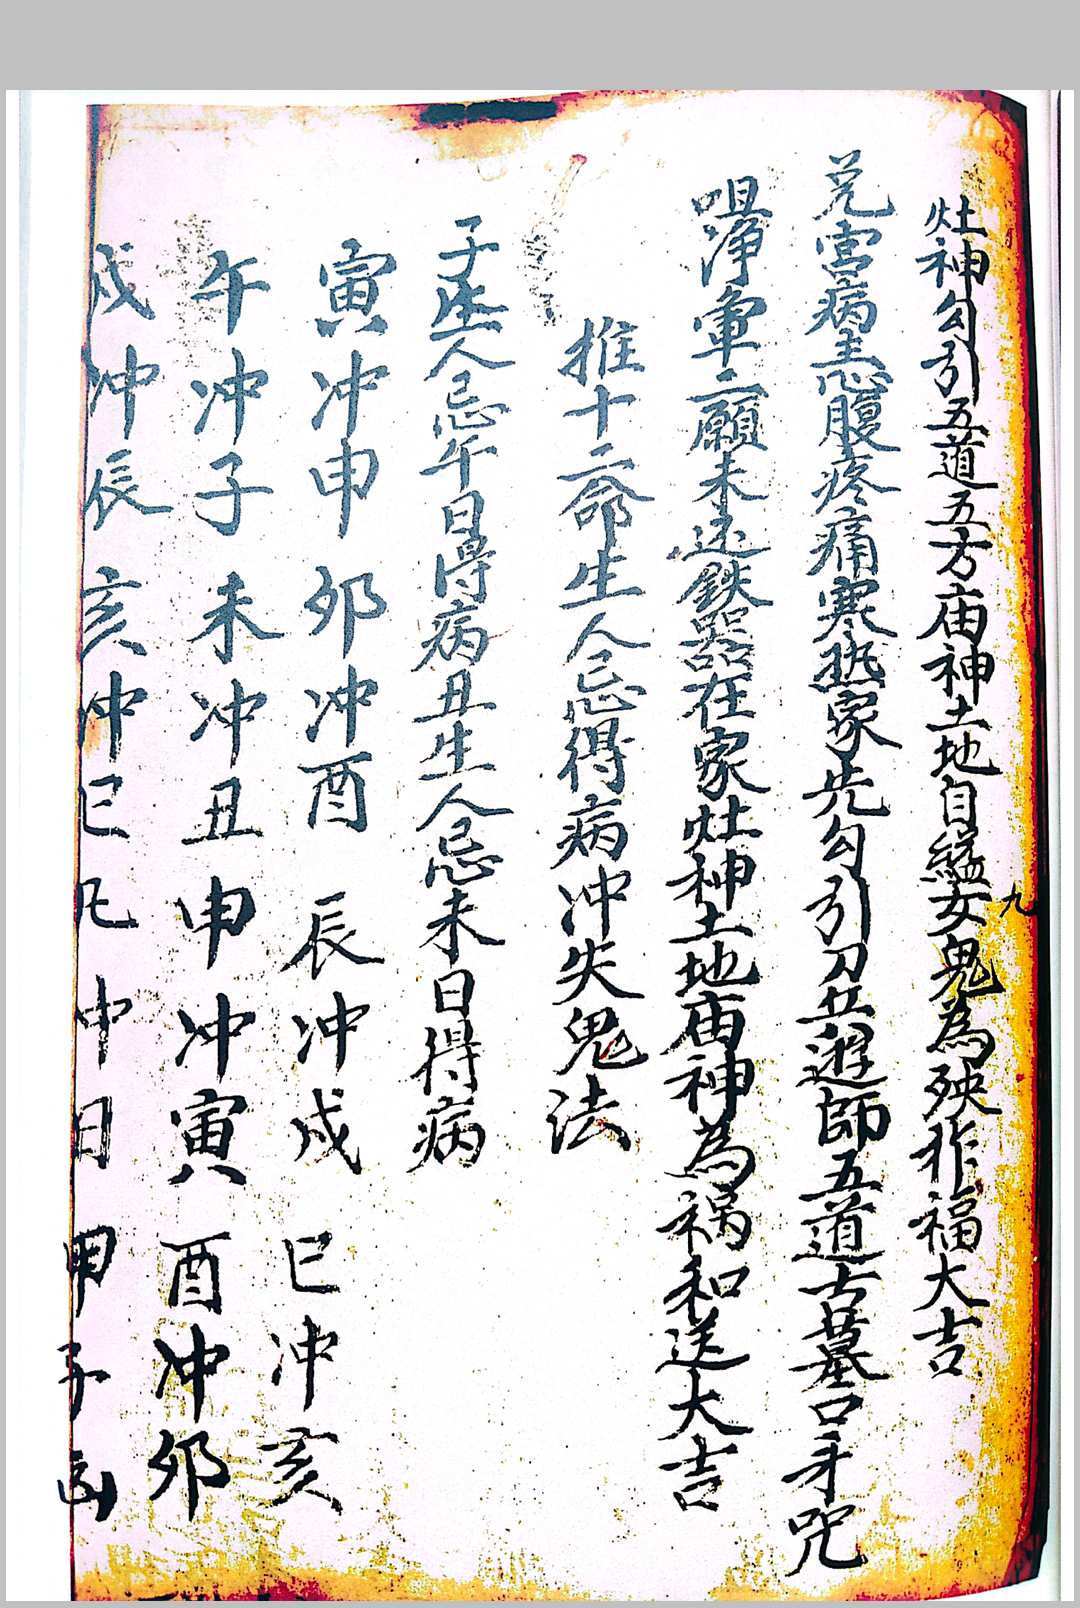 灶神勾引五道五方庙神土地自缢女鬼為殃作福大吉
九
兑宫病主心腹疼痛寒热家先勾引刀兵遊師五道古墓口牙咒
咀淨軍二願未还鉄器在家灶神土地庙神為祸和送大吉
推十二命生人忌得病冲失鬼法
子生人忌午日得病丑生人忌未日得病
寅冲申 卯冲酉 辰冲戌 巳冲亥
午冲子 未冲丑 申冲寅 酉冲卯
戌冲辰 亥冲巳 凡中日甲子